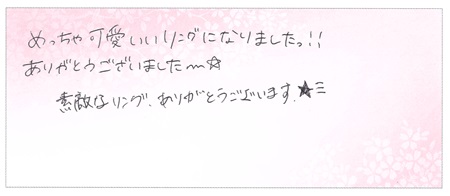 めっちゃ可愛いいリングになりましたっ!!
ありがとうございました〜☆
素敵なリング、ありがとうございます.★ミ